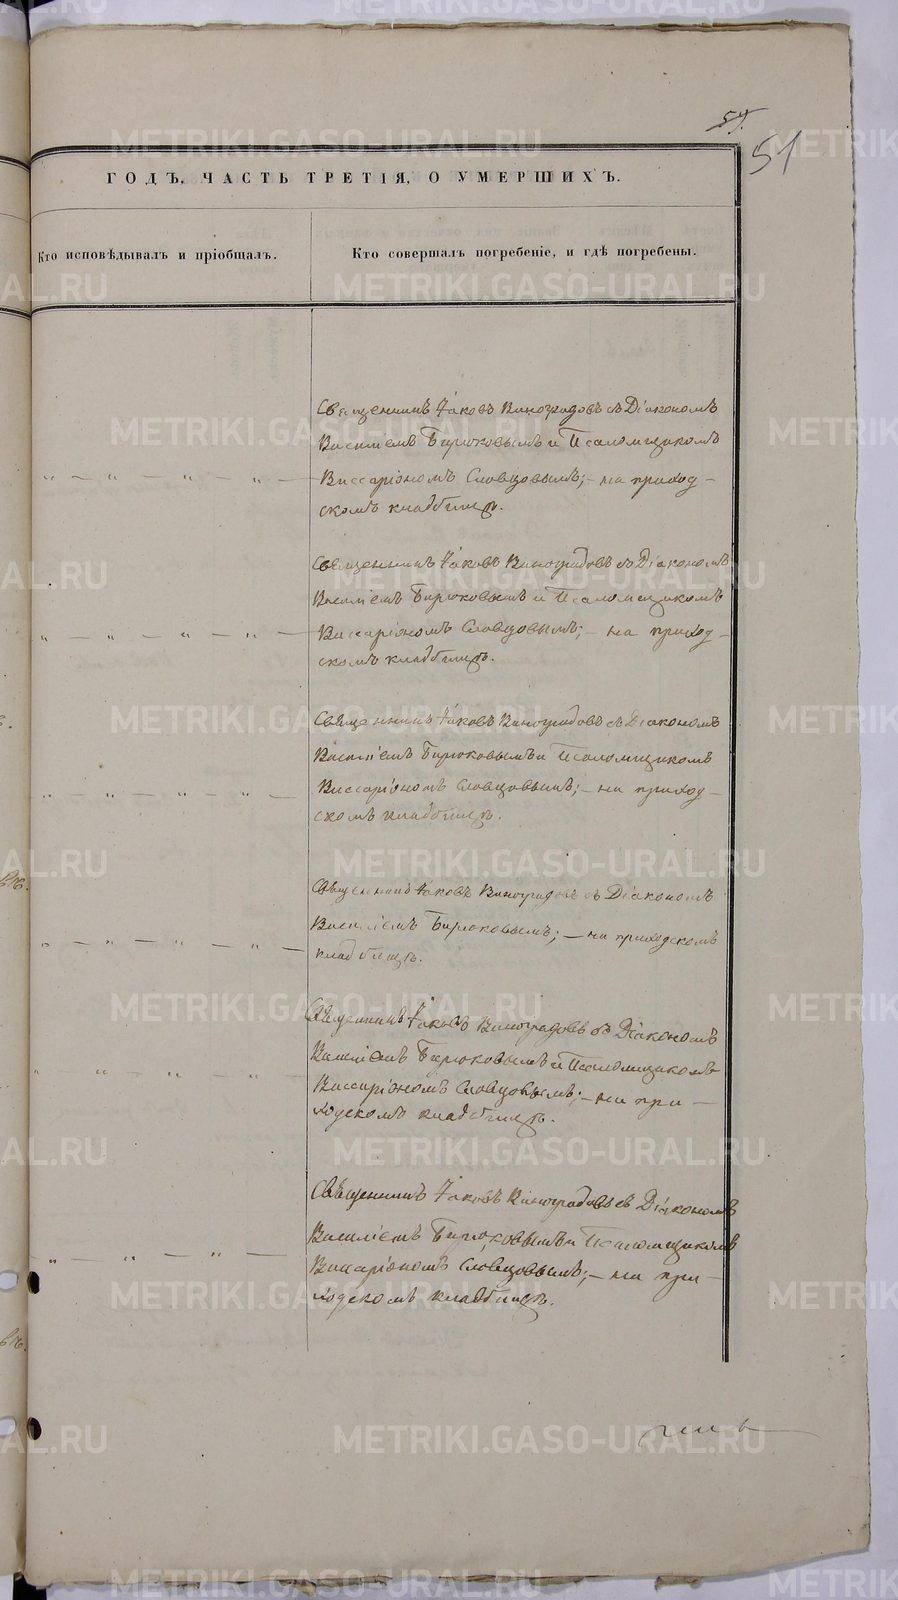 54.
51
ГОДЪ, ЧАСТЬ ТРЕТІЯ, О УМЕРШИХЪ.
Кто исповѣдывалъ и пріобщалъ.
Кто совершалъ погребеніе, и гдѣ погребены.
Священникъ Іаковъ Виноградовъ съ Діакономъ
Василіемъ Бирюковымъ и Псаломщикомъ
„ — „ — „ — „ — Виссаріономъ Словцовымъ; — на приход-
скомъ кладбищѣ.
Священникъ Іаковъ Виноградовъ съ Діакономъ
Василіемъ Бирюковымъ и Псаломщикомъ
„ — „ — „ — „ — Виссаріономъ Словцовымъ; — на приход-
скомъ кладбищѣ.
Священникъ Іаковъ Виноградовъ съ Діакономъ
Василіемъ Бирюковымъ и Псаломщикомъ
„ — „ — „ — „ — Виссаріономъ Словцовымъ; — на приход-
скомъ кладбищѣ.
Священникъ Іаковъ Виноградовъ съ Діакономъ
Василіемъ Бирюковымъ; — на приходскомъ
„ — „ — „ — „ —
кладбищѣ.
Священникъ Іаковъ Виноградовъ съ Діакономъ
Василіемъ Бирюковымъ и Псаломщикомъ
„ „ „ „
Виссаріономъ Словцовымъ; — на при-
ходскомъ кладбищѣ.
Священникъ Іаковъ Виноградовъ съ Діакономъ
Василіемъ Бирюковымъ и Псаломщикомъ
„ — „ — „ — „ —
Виссаріономъ Словцовымъ; — на при-
ходскомъ кладбищѣ.
METRIKI.GASO-URAL.RU